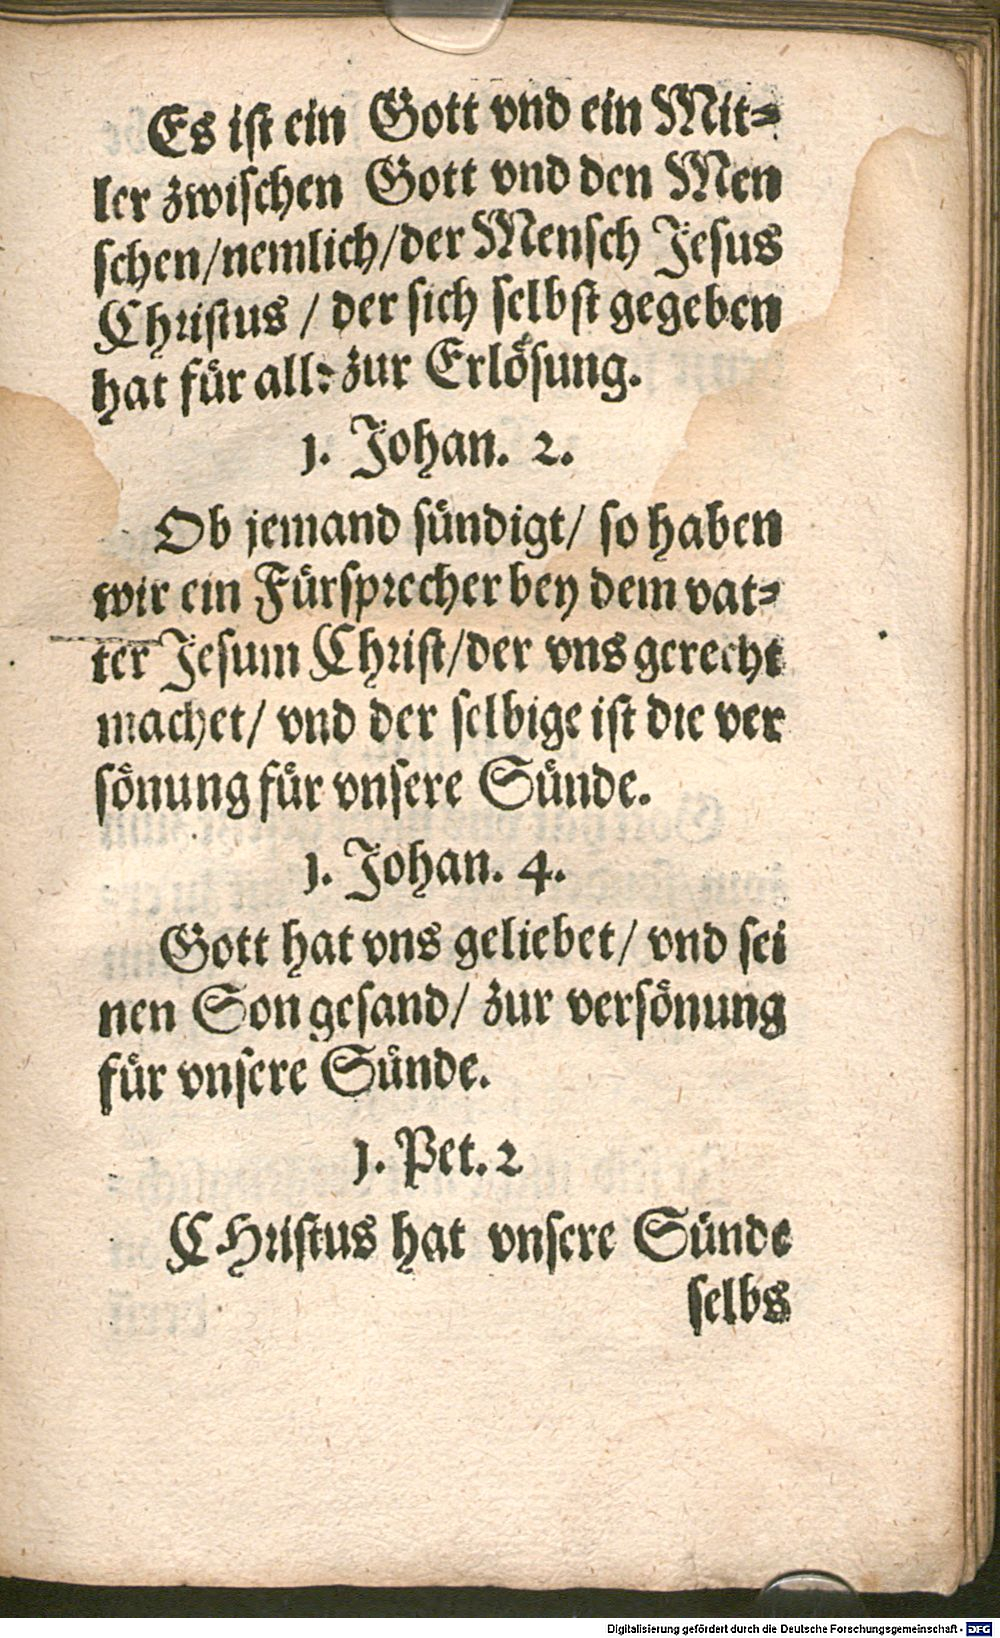 Es ist ein Gott vnd ein Mit-
ler zwischen Gott vnd den Men
schen/nemlich/der Mensch Jesus
Christus / der sich selbst gegeben
hat für alle zur Erlösung.
1. Johan. 2.
Ob jemand sündigt/ so haben
wir ein Fürsprecher bey dem vat-
ter Jesum Christ/der vns gerecht
machet/ vnd der selbige ist die ver
sönung für vnsere Sünde.
1. Johan. 4.
Gott hat vns geliebet/ vnd sei
nen Son gesand/ zur versönung
für vnsere Sünde.
1. Pet. 2
CHristus hat vnsere Sünde
selbs
Digitalisierung gefördert durch die Deutsche Forschungsgemeinschaft - DFG